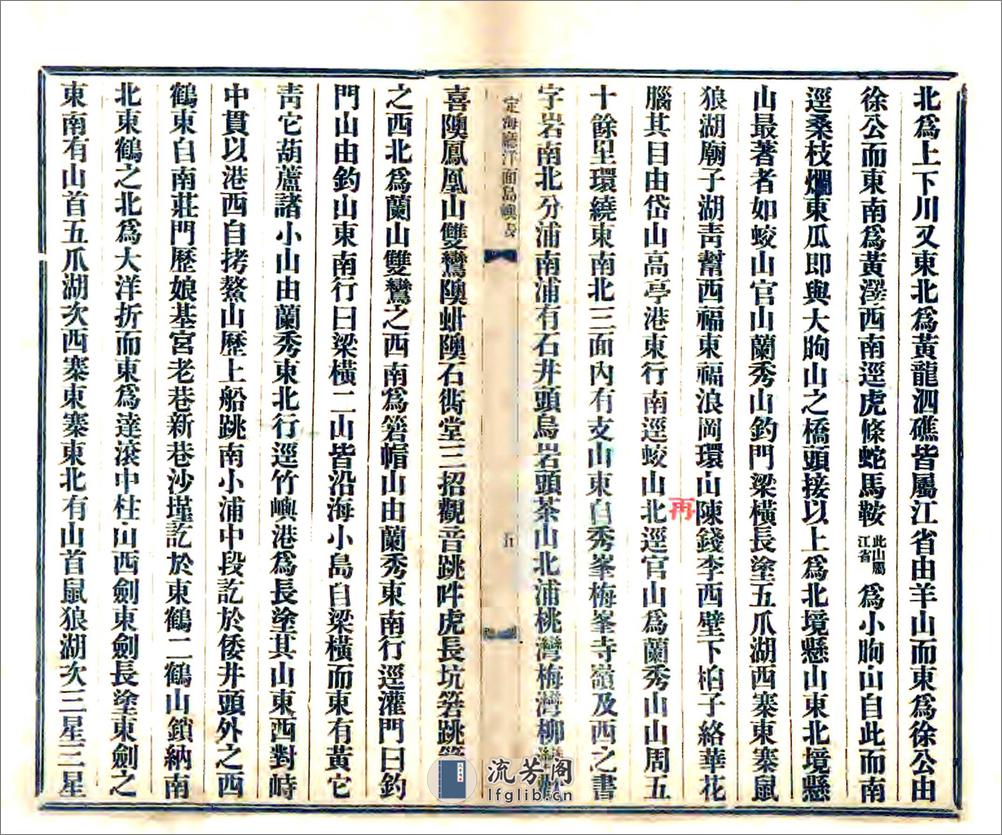 北爲上下川又東北爲黃龍泗礁皆屬江省由羊山而東爲徐公由
徐公而東南爲黃澤西南逕虎條蛇馬鞍此山屬江省爲小朐山自此而南
逕桑枝爛東瓜即與大朐山之橋頭接以上爲北境懸山東北境懸
山最著者如蛟山官山蘭秀山釣門梁橫長塗五爪湖西寨東寨鼠
狼湖廟子湖靑幫西福東福浪岡環山陳錢李西壁下柏子絡華花
再
腦其目由岱山高亭港東行南逕蛟山北逕官山爲蘭秀山山周五
十餘里環繞東南北三面內有支山東自秀峯梅峯寺嶺及西之書
字岩南北分浦南浦有石井頭烏岩頭茶山北浦桃灣梅灣柳
定海廳洋面島嶼表
五
喜隩鳳凰山雙鸞隩蚶隩石衖堂三招觀音跳吽虎長坑箬跳
之西北爲蘭山雙鸞之西南爲箬帽山由蘭秀東南行逕灌門曰釣
門山由釣山東南行曰梁橫二山皆沿海小島自梁橫而東有黃它
靑它葫蘆諸小山由蘭秀東北行逕竹嶼港爲長塗其山東西對峙
中貫以港西自拷鰲山歷上船跳南小浦中段訖於倭井頭外之西
鶴東自南莊門歷娘基宮老巷新巷沙墐訖於東鶴二鶴山鎖納南
北東鶴之北爲大洋折而東爲達滾中柱山西劍東劍長塗東劍之
東南有山首五爪湖次西寨東寨東北有山首鼠狼湖次三星三星
流芳閣
lfglib.cn